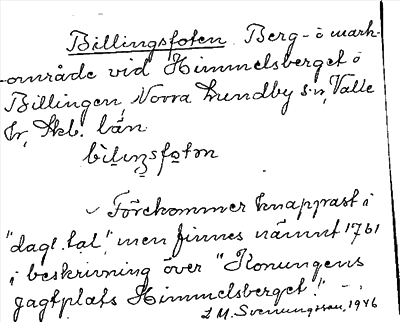 Billingsfoten. Berg- o mark-
-område vid Himmelsberget å
Billingen, Norra Lundby s:n, Valle
hr, Skb. län
bìliŋsfo̱tən
Förekommer knappast i
"dagl. tal", men finnes nämnt 1761
i beskrivning över "Konungens
jagtplats Himmelsberget!" –
L M. Svenungsson, 1946